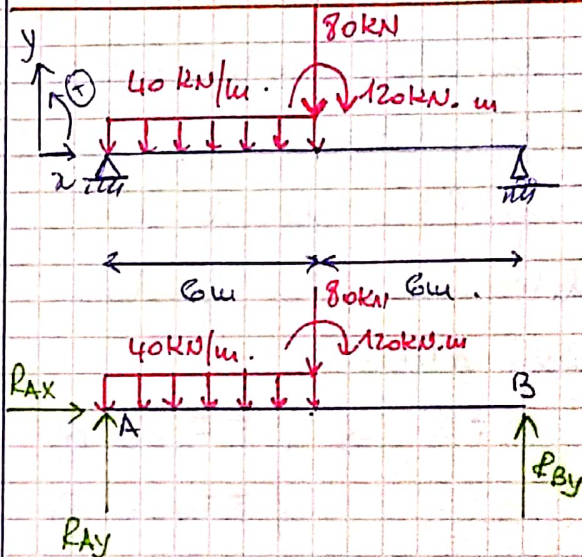 80KN
y
+
40KN/m.
120KN.m
x
6m
6m.
80KN
40KN/m.
120KN.m
RAX
A
B
RBy
RAy